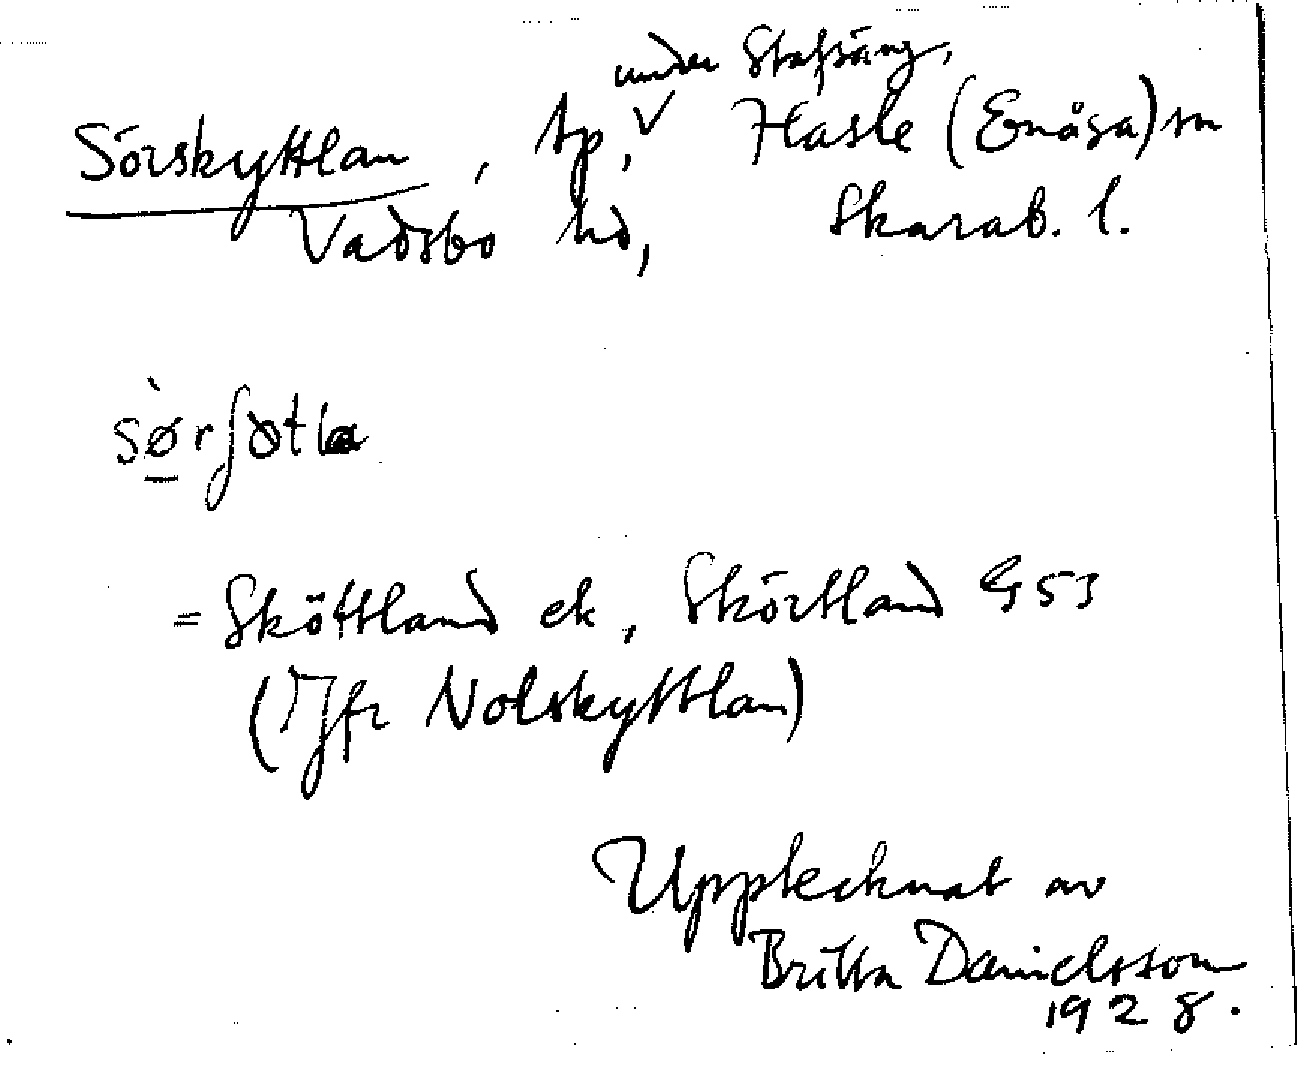 under Stafsäng,
Sörskyttlan, tp, Hasle (Enåsa) sn
Vadsbo hd, Skarab. l.
sø̀rʃɔtla
= Sköttland ek, Skörtland G 53
(Jfr Nolskyttlan)
Upptecknat av
Britta Danielsson
1928.